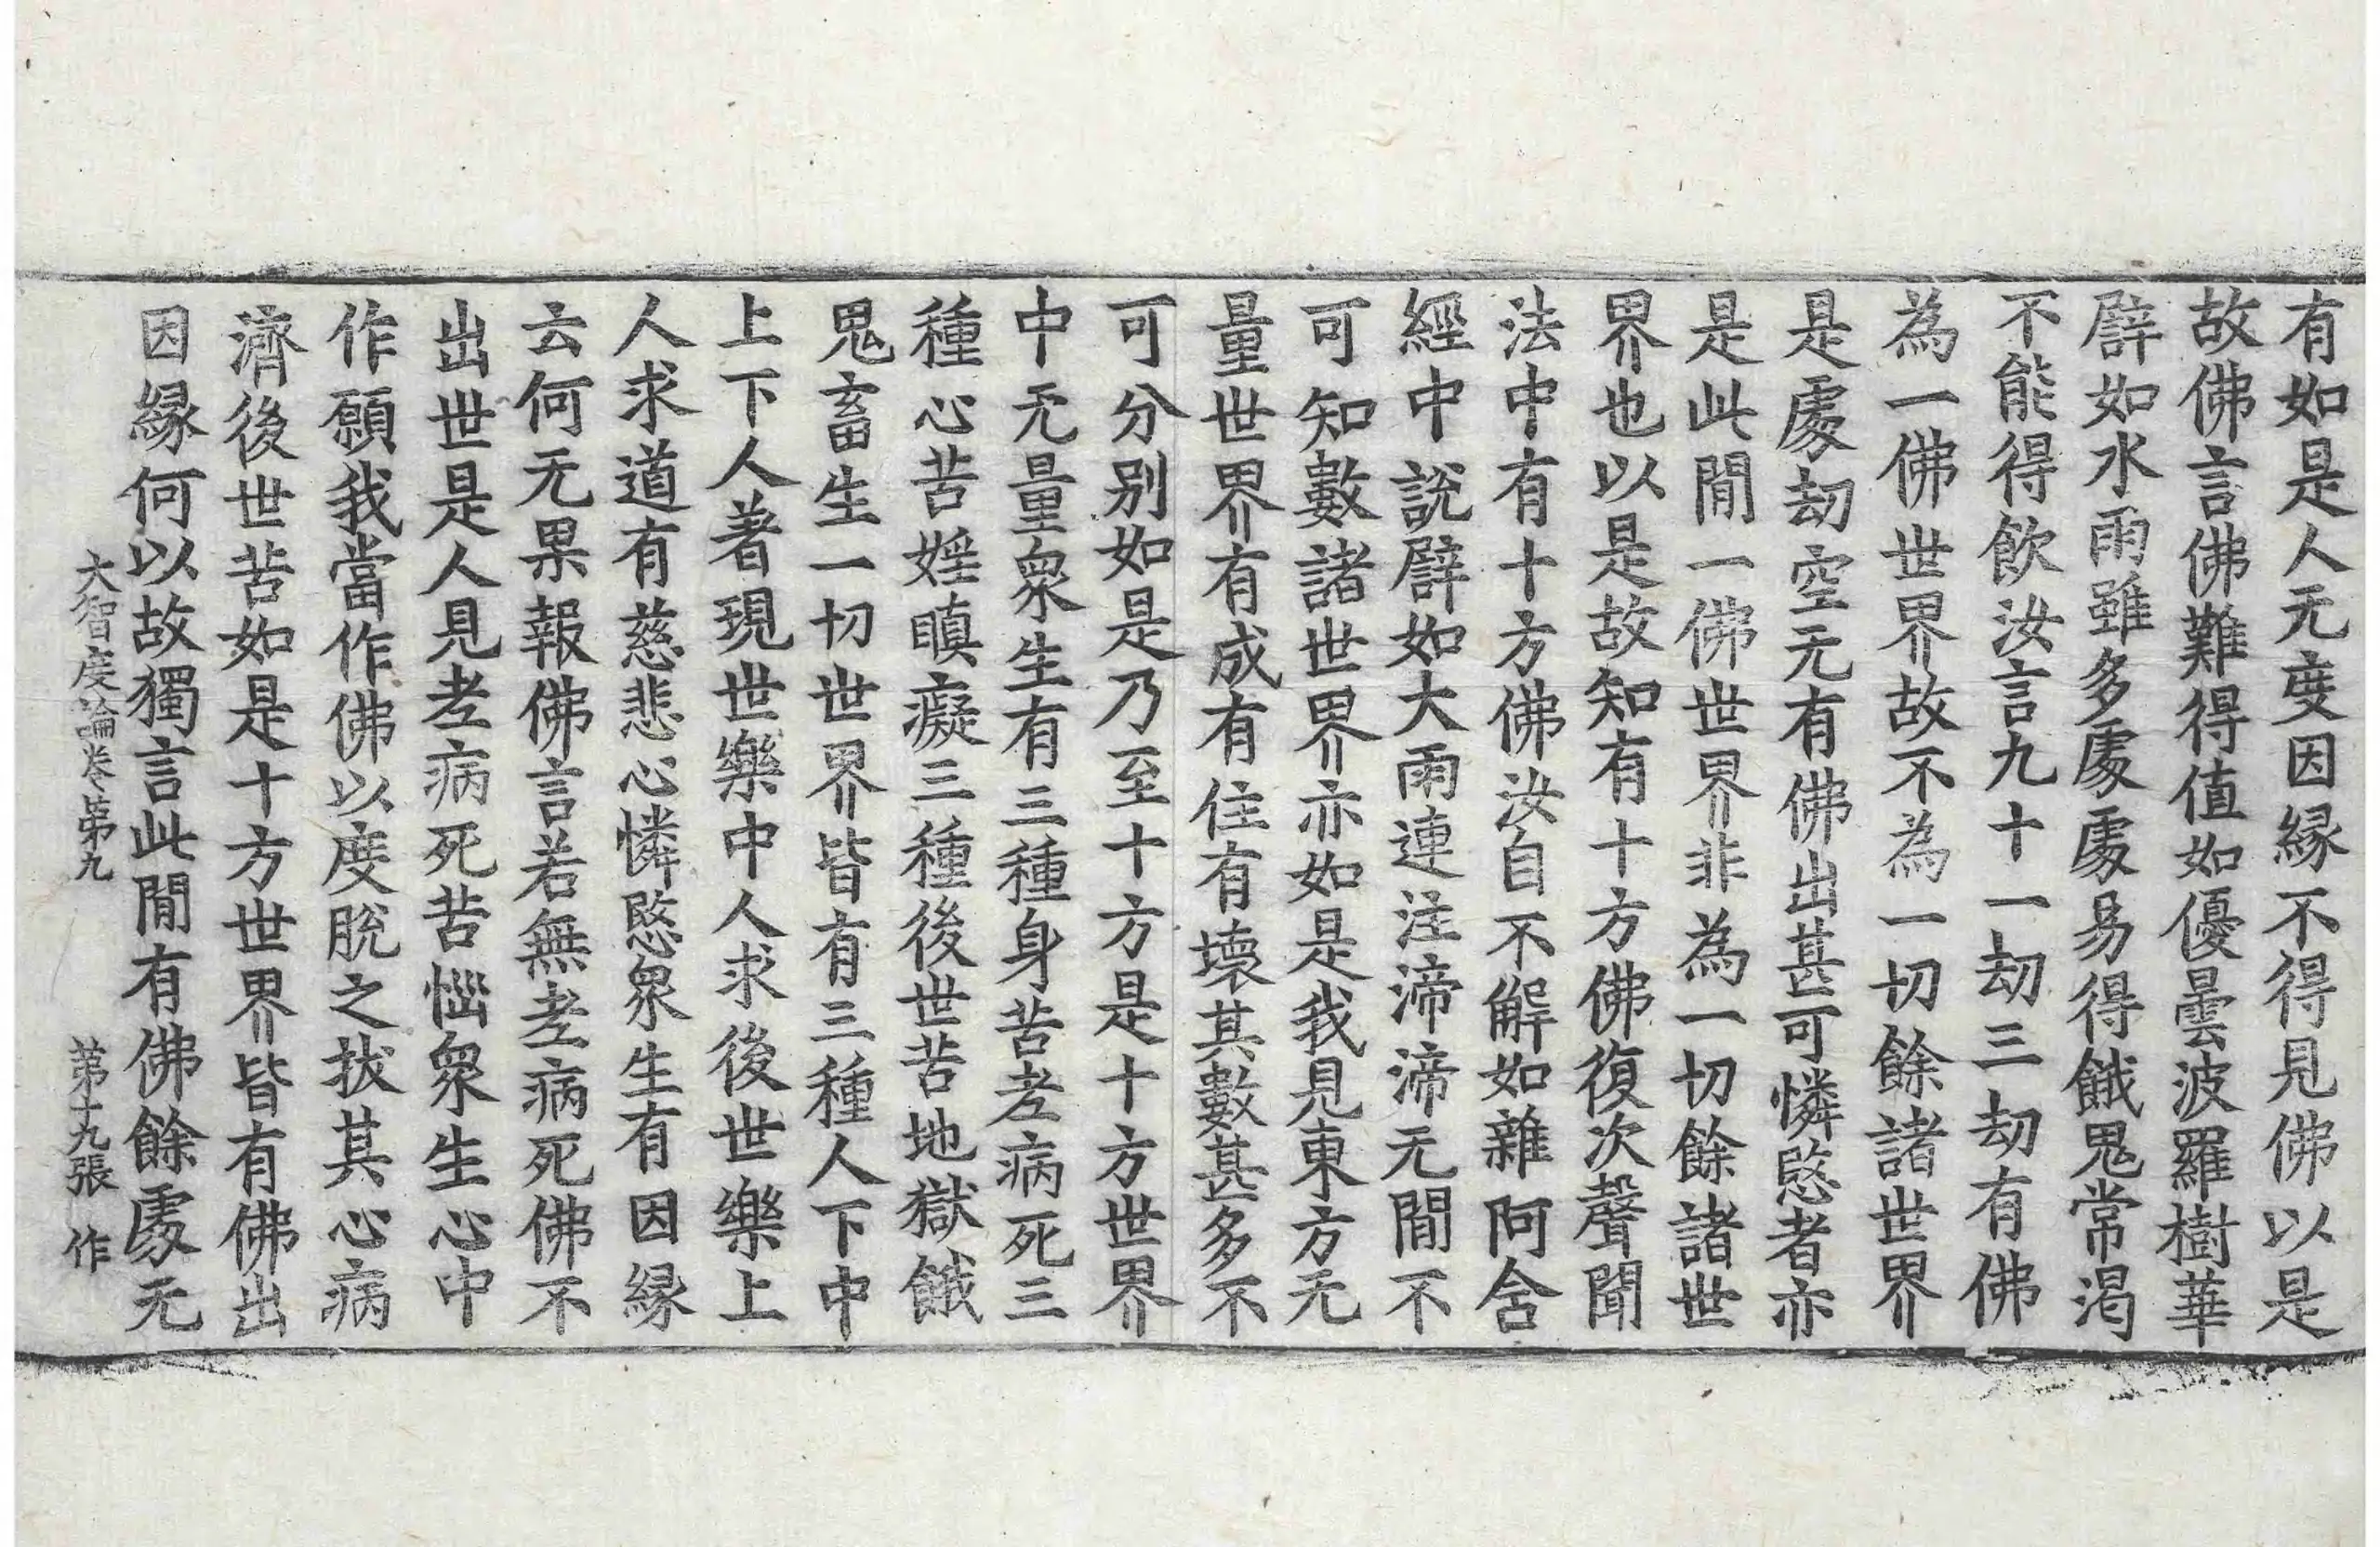 有如是人无度因縁不得見佛以是
故佛言佛難得值如優曇波羅樹華
譬如水雨雖多處處易得餓鬼常渴
不能得飲汝言九十一劫三劫有佛
為一佛世界故不為一切餘諸世界
是處劫空无有佛出甚可憐愍者亦
是此閒一佛世界非為一切餘諸世
界也以是故知有十方佛復次聲聞
法中有十方佛汝自不解如雜阿含
經中說譬如大雨連注渧渧无閒不
可知數諸世界亦如是我見東方无
量世界有成有住有壞其數甚多不
可分別如是乃至十方是十方世界
中无量衆生有三種身苦老病死三
種心苦婬瞋癡三種後世苦地獄餓
鬼畜生一切世界皆有三種人下中
上下人著現世樂中人求後世樂上
人求道有慈悲心憐愍衆生有因縁
云何无果報佛言若無老病死佛不
出世是人見老病死苦惱衆生心中
作願我當作佛以度脫之拔其心病
濟後世苦如是十方世界皆有佛出
因縁何以故獨言此閒有佛餘處无
大智度論卷第九 第十九張 作